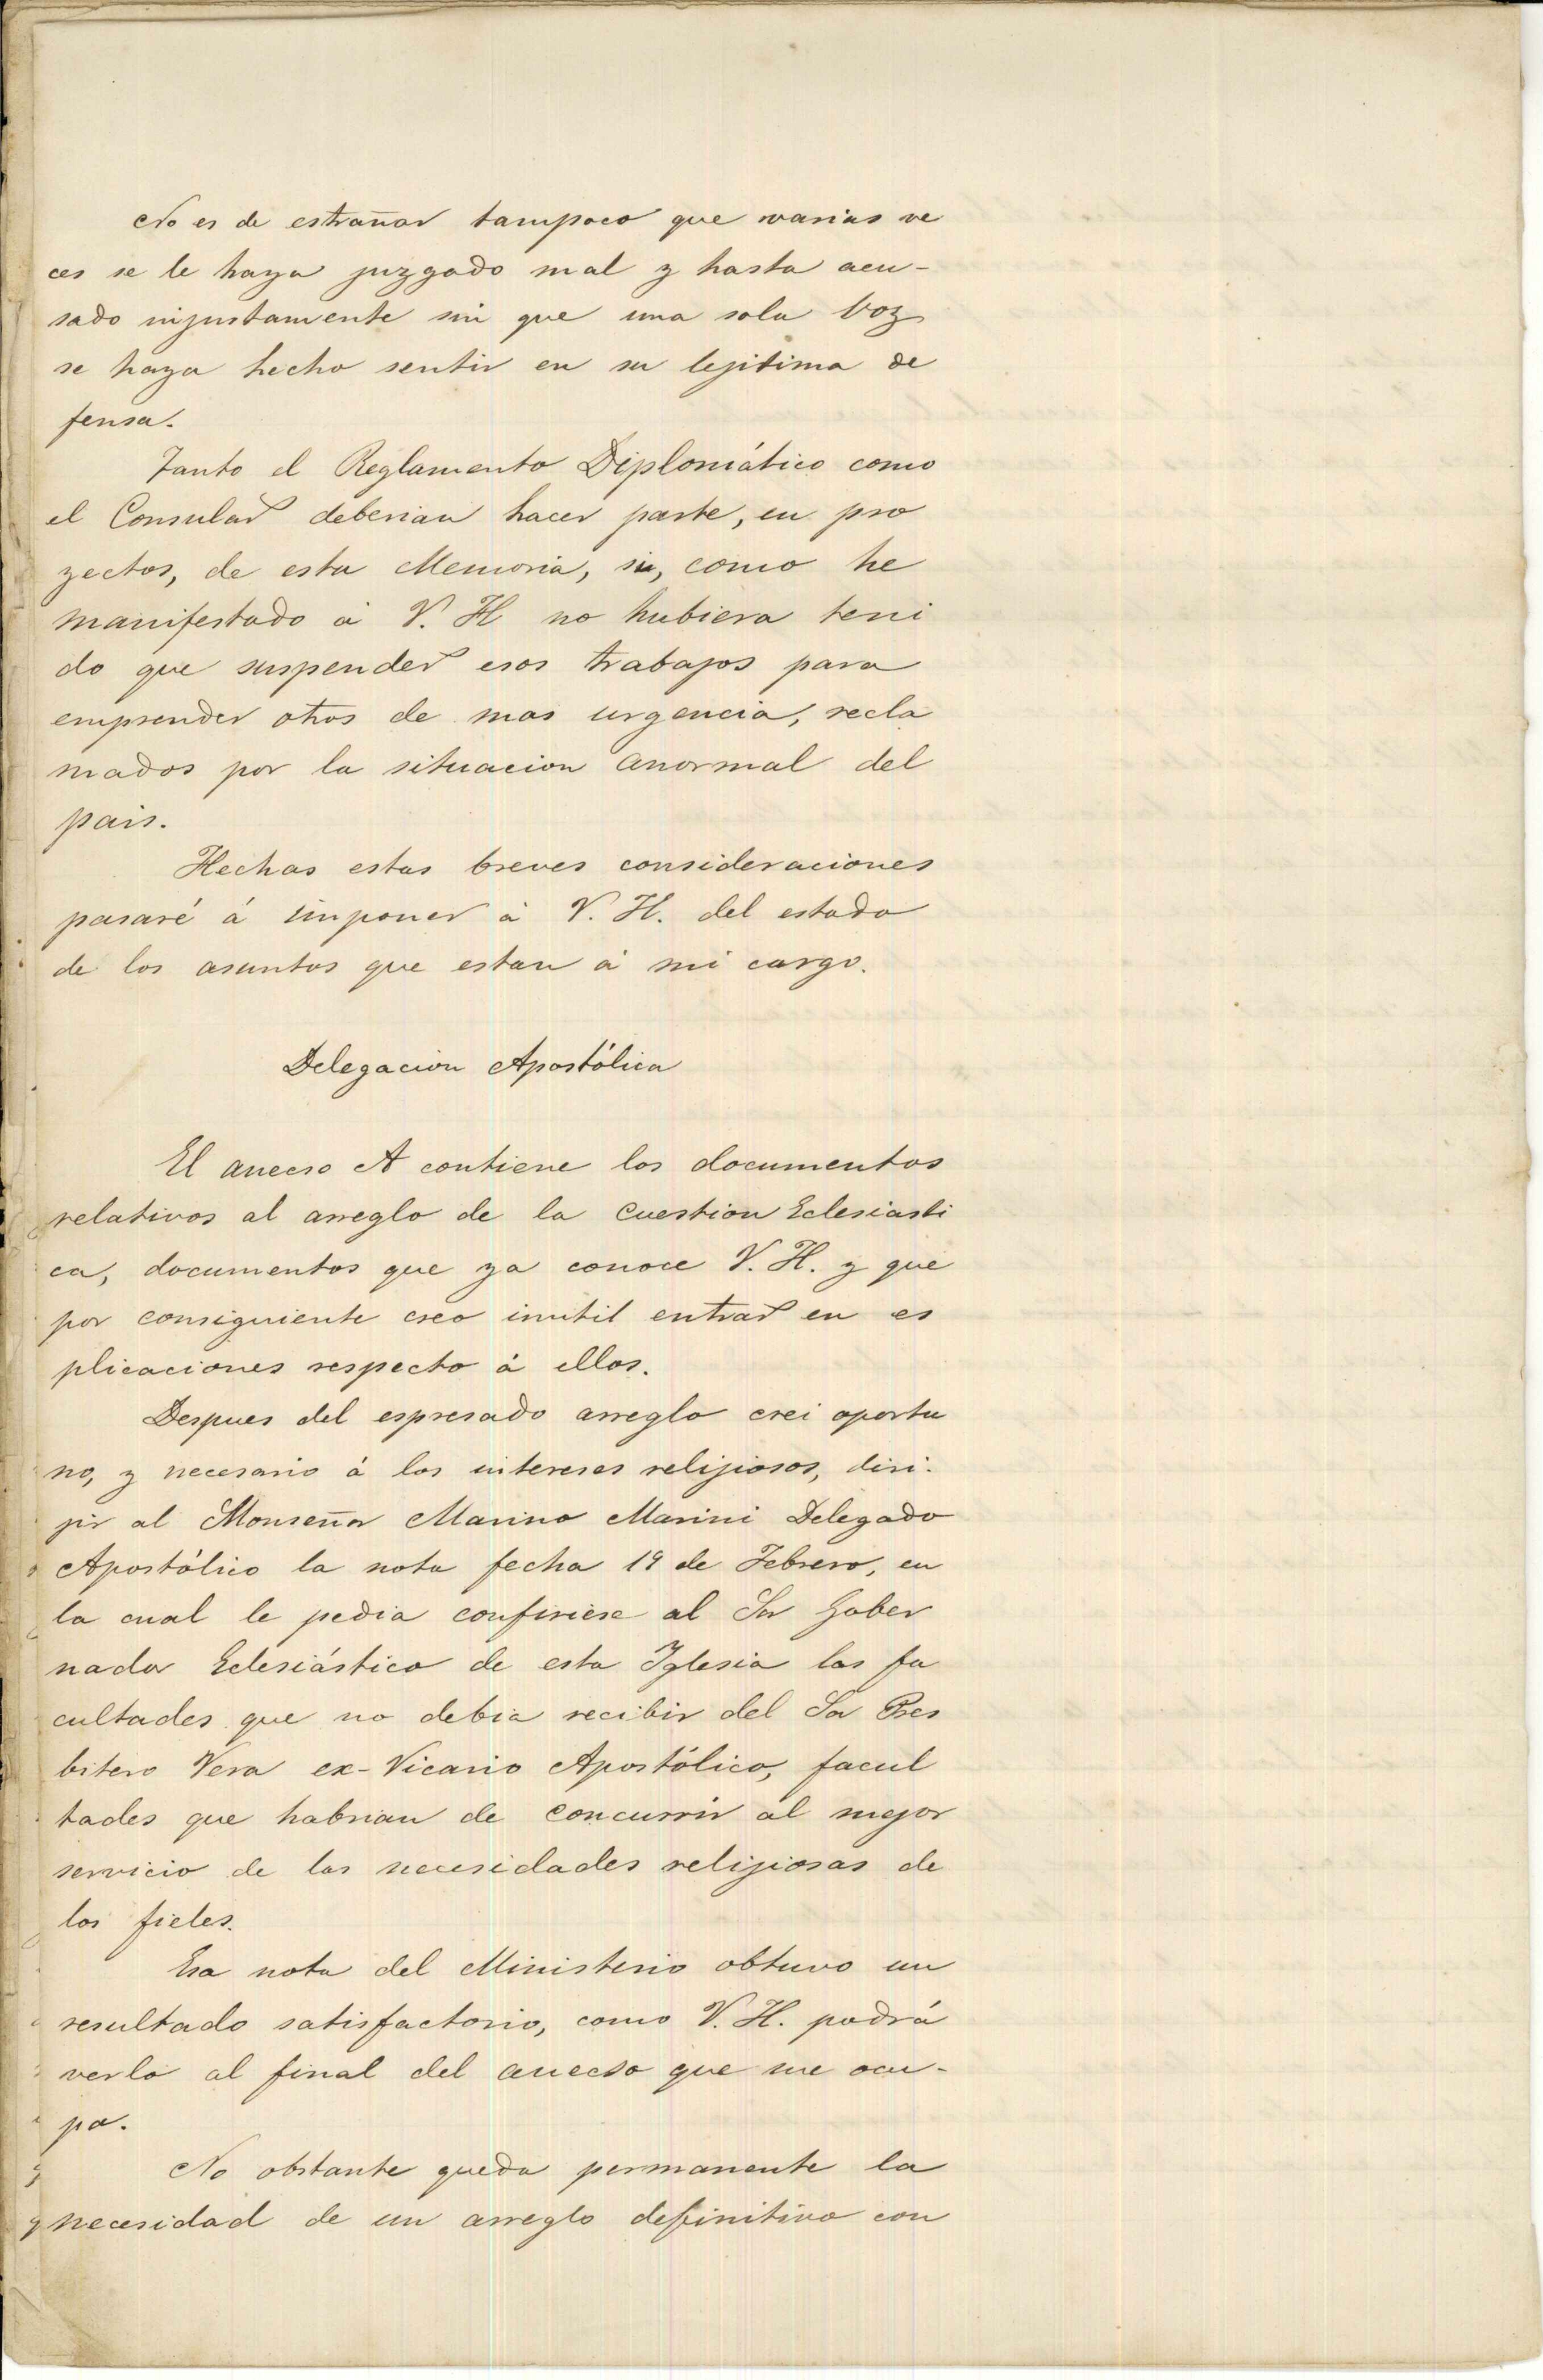 No es de estrañar tampoco que varias ve
ces se le haya juzgado mal y hasta acu-
sado injustamente sin que una sola voz
se haya hecho sentir en su lejitima de
fensa.
Tanto el Reglamento Diplomático como
el Consular deberian hacer parte, en pro
yectos, de esta Memoria, si, como he
manifestado á V. H no hubiera teni
do que suspender esos trabajos para
emprender otros de mas urgencia, recla
mados por la situacion anormal del
pais.
Hechas estas breves consideraciones
pasaré á imponer á V. H. del estado
de los asuntos que estan á mi cargo.
Delegacion Apostólica
El anecso A contiene los documentos
relativos al arreglo de la cuestion Eclesiasti
ca, documentos que ya conoce V. H. y que
por consiguiente creo inutil entrar en es
plicaciones respecto á ellos.
Despues del espresado arreglo crei oportu
no, y necesario á los intereses relijiosos, diri-
jir al Monseñor Marino Marini Delegado
Apostólico la nota fecha 19 de Febrero, en
la cual le pedia confiriese al Sor Gober
nador Eclesiástico de esta Iglesia las fa
cultades que no debia recibir del Sor Pres
bitero Vera ex-Vicario Apostólico, facul
tades que habrian de concurrir al mejor
servicio de las necesidades relijiosas de
los fieles.
Esa nota del Ministerio obtuvo un
resultado satisfactorio, como V. H. podrá
verlo al final del anecso que me ocu-
pa.
No obstante queda permanente la
necesidad de un arreglo definitivo con